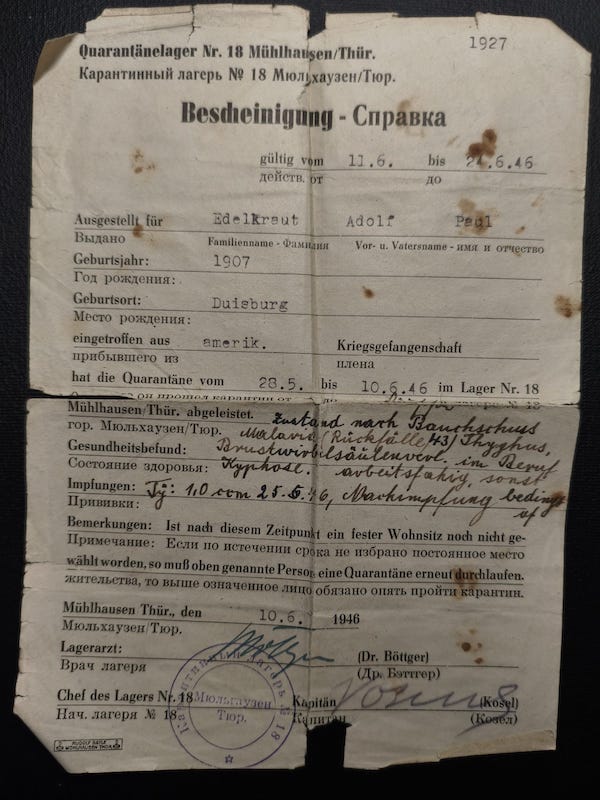 1927
Quarantänelager Nr. 18 Mühlhausen/Thür.
Карантинный лагерь № 18 Мюльхаузен/Тюр.
Bescheinigung - Справка
gültig vom 11.6. bis 24.6.46
действ. от до
Ausgestellt für Edelkraut Adolf Paul
Выдано Familienname - Фамилия Vor- u. Vatersname - имя и отчество
Geburtsjahr: 1907
Год рождения:
Geburtsort: Duisburg
Место рождения:
eingetroffen aus amerik. Kriegsgefangenschaft
прибывшего из плена
hat die Quarantäne vom 28.5. bis 10.6.46 im Lager Nr. 18
он прошел карантин от
Mühlhausen/Thür. abgeleistet. Zustand nach Bauchschuss
гор. Мюльхаузен/Тюр. Malaria (Rückfälle, 43) Thyphus,
Gesundheitsbefund: Brustwirbelsäulenverl. im Beruf
Состояние здоровья: Kyphose. arbeitsfähig, sonst
Impfungen: Ty: 1,0 ccm 25.5.46, Nachimpfung beding
Прививки:
Bemerkungen: Ist nach diesem Zeitpunkt ein fester Wohnsitz noch nicht ge-
Примечание: Если по истечении срока не избрано постоянное место
wählt worden, so muß oben genannte Person eine Quarantäne erneut durchlaufen.
жительства, то выше означенное лицо обязано опять пройти карантин.
Mühlhausen Thür., den 10.6. 1946
Мюльхаузен/Тюр.
Lagerarzt: (Dr. Böttger)
Врач лагеря (Др. Бэттгер)
Chef des Lagers Nr. 18 Kapitän (Kosel)
Нач. лагеря № 18 Капитан (Козел)
Карантинный лагерь № 18
Мюльгаузен
Тюр.